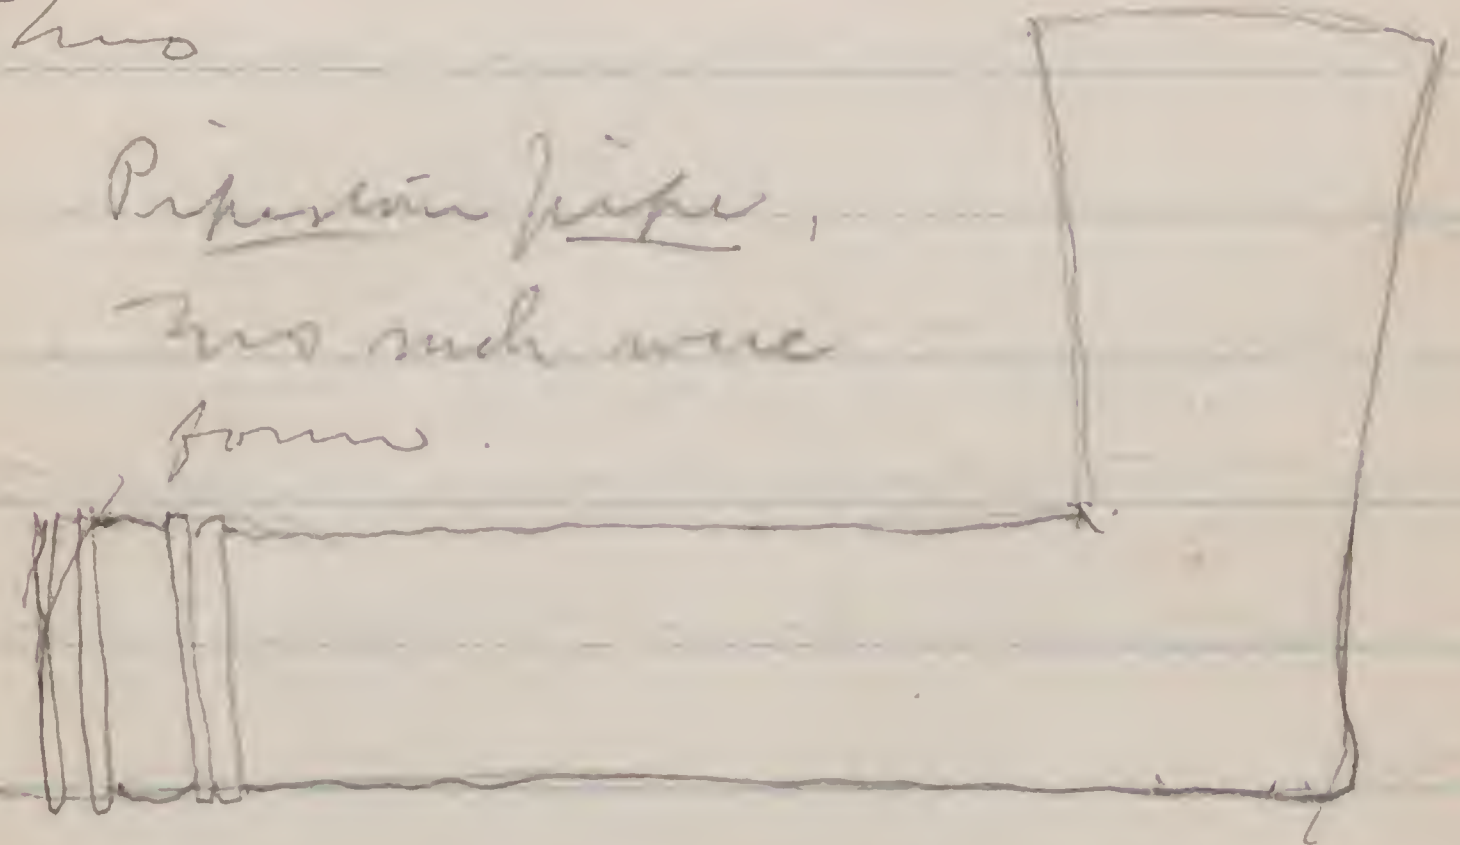 Pipestone pipe.
Two such were
found.